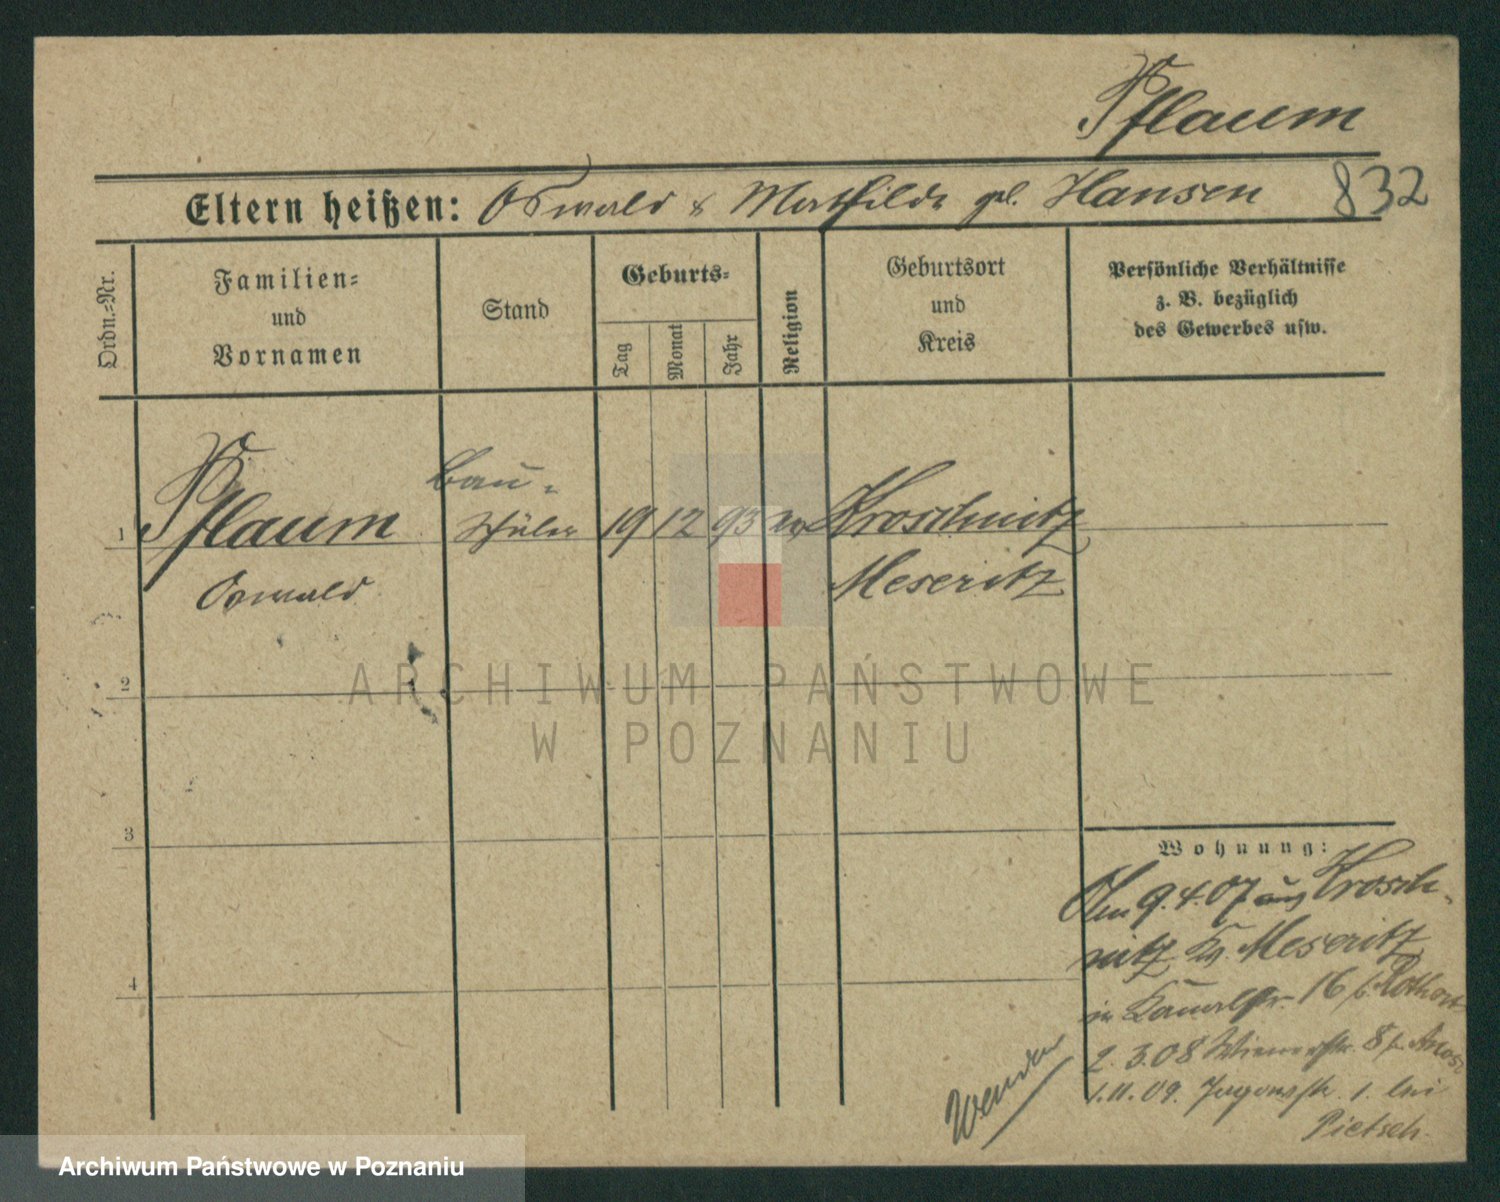 Pflaum
Eltern heißen: Oswald & Mathilde geb. Hansen 832
Ordn.-Nr.
Familien-
und
Vornamen
Stand
Geburts-
Tag
Monat
Jahr
Religion
Geburtsort
und
Kreis
Persönliche Verhältnisse
z. B. bezüglich
des Gewerbes usw.
1 Pflaum
Oswald
Bau-
schüler
19 12 93 ev
Kroschnitz
Meseritz
2
3
4
ARCHIWUM PAŃSTWOWE
W POZNANIU
Wohnung:
Am 9.4.07 aus Krosch-
nitz Kr. Meseritz
in Kanalstr. 16
2.3.08 Wienerstr. 8
1.11.09. Jagowstr. 1. bei
Pietsch.
Wenden
Archiwum Państwowe w Poznaniu